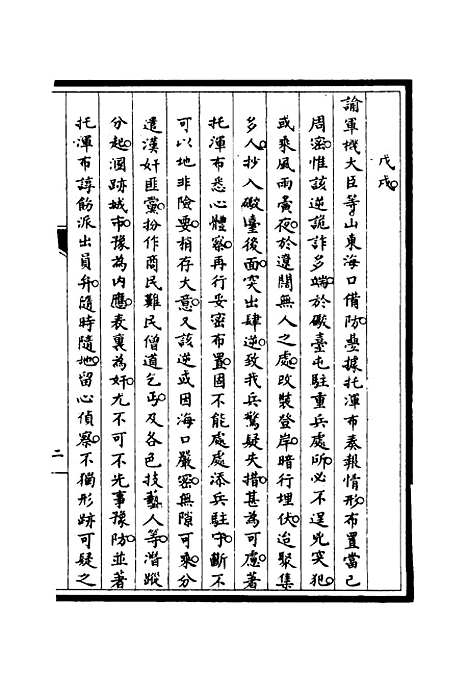 戊戌
諭軍機大臣等山東海口備防疊據托渾布奏報情形布置當已
周密惟該逆詭詐多端於礮臺屯駐重兵處所必不逞兇突犯
或乘風雨黃夜於遼闊無人之處改裝登岸暗行埋伏迨聚集
多人抄入礮臺後面突出肆逆致我兵驚疑失措甚為可慮著
托渾布悉心體察再行妥密布置固不能處處添兵駐守斷不
可以地非險要稍存大意又該逆或因海口嚴密無隙可乘分
遣漢奸匪黨扮作商民難民僧道乞丐及各色技藝人等潛蹤
分起溷跡城市豫為內應表裏為奸尤不可不先事豫防並著
托渾布諄飭派出員弁隨時隨地留心偵察不獨形跡可疑之
二